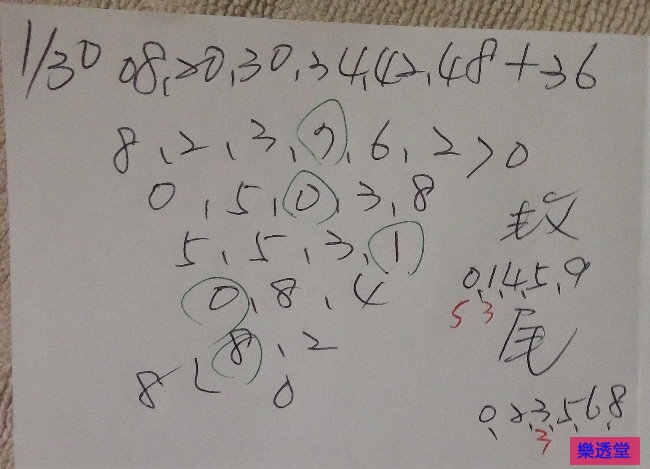 1/30 08,20,30,34,42,48+36
8,2,3,9,6,2>0
0,5,0,3,8
5,5,3,1
0,8,4
8,2
8 0
0,1,4,5,9
5 3
尾
0,2,3,5,6,8
3
樂透堂